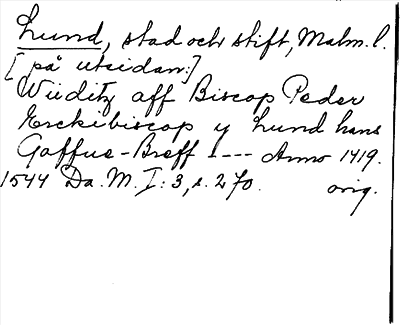 Lund, stad och stift, Malm. l.
[på utsidan:]
Wiiditz aff Biscop Peder
Erckibiscop y Lund hans
Gaffue-Breff ---- Anno 1419.
1544 Da. M. I: 3, s. 270. orig.